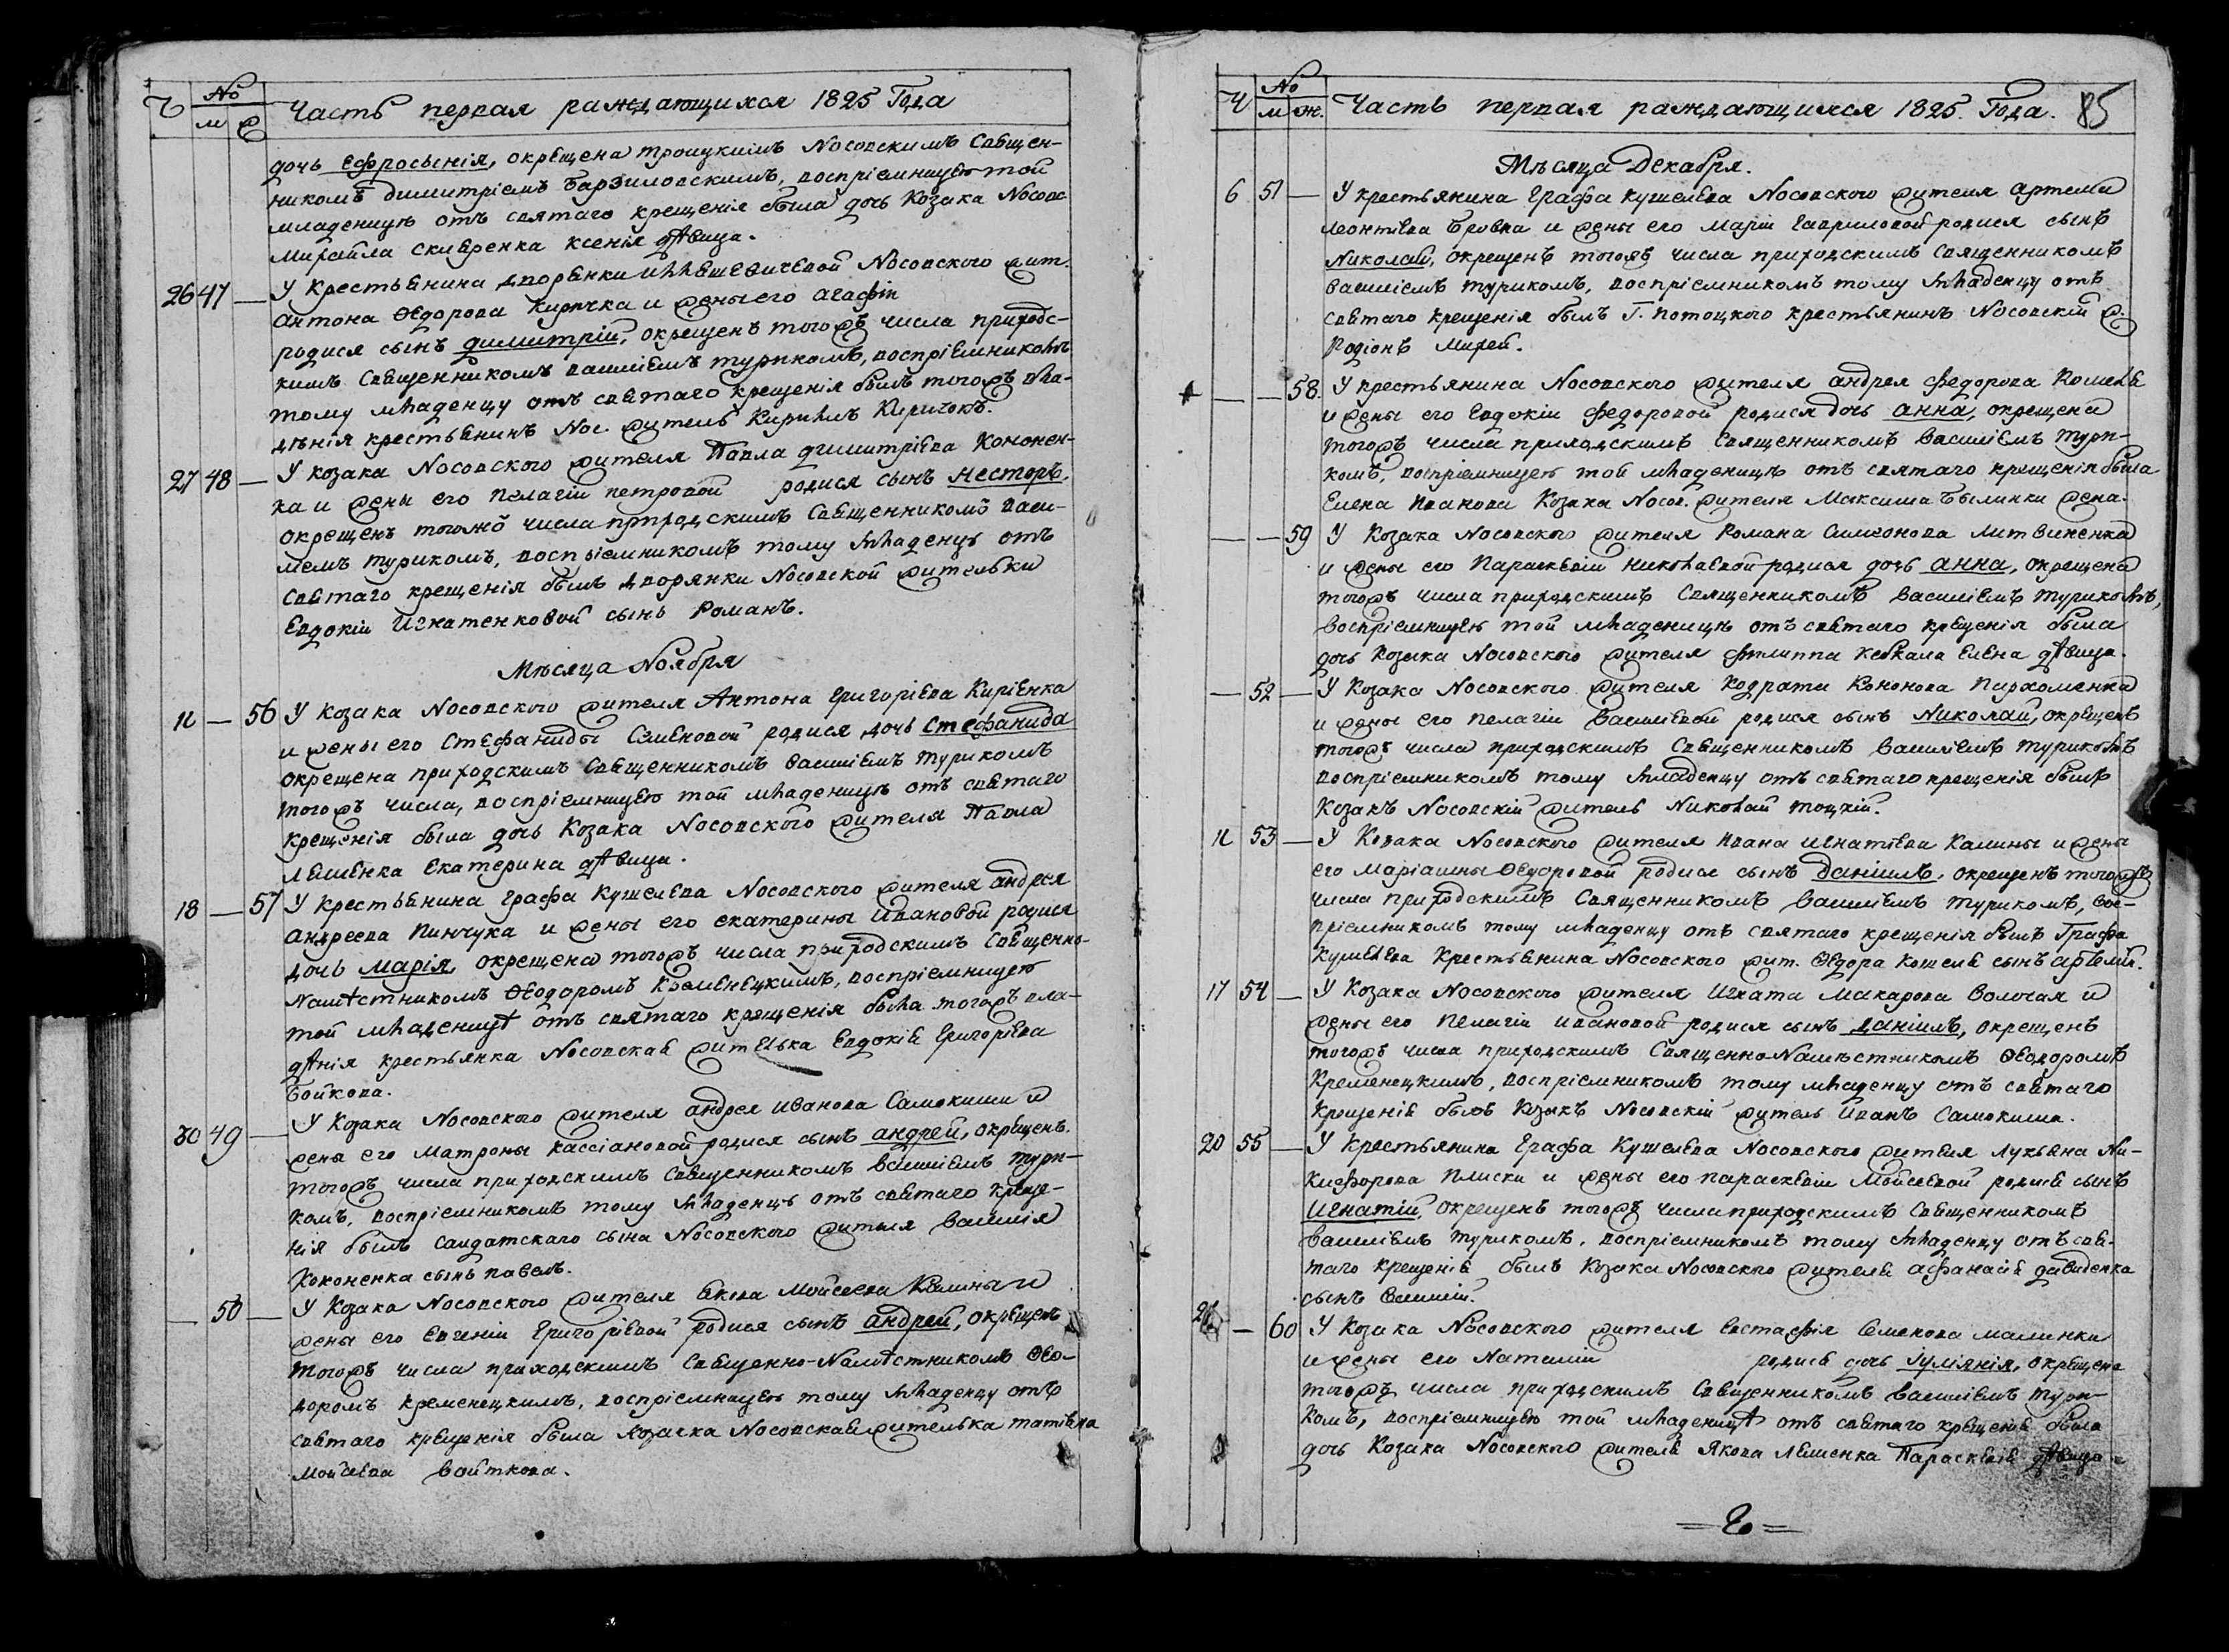 Ч № м ж Часть первая раждающихся 1825 Года
дочь Ефросынія, окрещена троицкимъ Носовскимъ Священ-
никомъ димитріемъ Барзиловскимъ, воспріемницею той
младеницѣ отъ святаго крещенія была дочь Козака Носовс
Михайла Ксенія дѣвица.
26 47 — У Крестьянина дворянки Носовского жит.
антона Ѳедорова Киричка и жены его агафіи
родися сынъ димитрій, окрещенъ тогожъ числа приходс-
кимъ Священникомъ василіемъ турикомъ, воспріемникомъ
тому младенцу отъ святаго крещенія былъ тогожъ вла-
дѣнія крестьянинъ Нос. житель Кирилъ Киричокъ.
27 48 — У козака Носовского жителя Павла димитріева Кононен-
ка и жены его пелагіи петровой родися сынъ Несторъ,
окрещенъ тогожъ числа приходскимъ Священникомъ васи-
ліемъ турикомъ, воспріемникомъ тому младенцу отъ
святаго крещенія былъ дворянки Носовской жительки
Евдокіи Игнатенковой сынъ Романъ.
Мѣсяца Ноября
11 — 56 У козака Носовского жителя Антона григоріева Киріенка
и жены его Стефаниды Семеновой родися дочь Стефанида
окрещена приходскимъ Священникомъ василіемъ турикомъ
тогожъ числа, воспріемницею той младеницѣ отъ святаго
крещенія была дочь Козака Носовского жителя Павла
Лешенка Екатерина дѣвица.
18 — 57 У крестьянина графа Кушелева Носовского жителя андрея
андреева Пинчука и жены его екатерины Ивановой родися
дочь марія, окрещена тогожъ числа приходскимъ Священно-
Намѣстникомъ Ѳеодоромъ Кременецкимъ, воспріемницею
той младеницѣ отъ святаго крещенія была тогожъ вла-
дѣнія крестьянка Носовская жителька Евдокія григоріева
Бойкова.
30 49 — У Козака Носовского жителя андрея иванова Самокиши и
жены его Матроны Кассіановой родися сынъ андрей, окрещенъ
тогожъ числа приходскимъ Священникомъ василіемъ тури-
комъ, воспріемникомъ тому младенцу отъ святаго креще-
нія былъ салдатскаго сына Носовского жителя василія
Кононенка сынъ павелъ.
— 50 — У Козака Носовского жителя якова Мойсеева Калины и
жены его Евгеніи григоріевой родися сынъ андрей, окрещенъ
тогожъ числа приходскимъ Священно-Намѣстникомъ Ѳео-
доромъ кременецкимъ, воспріемницею тому младенцу отъ
святаго крещенія была козачка Носовская жителька
Мойсеева Войткова.
Ч № м ж. Часть первая раждающихся 1825. Года. 85
Мѣсяца Декабря.
6 51 — У крестьянина графа кушелева Носовского жителя артема
леонтіева Бровка и жены его маріи гавриловой родися сынъ
Николай, окрещенъ тогожъ числа приходскимъ Священникомъ
василіемъ турикомъ, воспріемникомъ тому младенцу отъ
святаго крещенія былъ Г. потоцкого крестьянинъ Носовскій ж.
Родіонъ Михей.
— — 58. У крестьянина Носовского жителя андрея федорова Кошеля
и жены его евдокіи федоровой родися дочь анна, окрещена
тогожъ числа приходскимъ священникомъ василіемъ тури-
комъ, воспріемницею той младеницѣ отъ святаго крещенія была
Елена Иванова Козака Носов. жителя Максима Былинки жена.
— — 59 У Козака Носовского жителя Романа Симеонова Литвиненка
и жены его Параскевіи николаевой родися дочь анна, окрещена
тогожъ числа приходскимъ Священникомъ василіемъ турикомъ,
воспріемницею той младеницѣ отъ святаго крещенія была
дочь Козака Носовского жителя филиппа Кебкала Елена дѣвица.
— 52 — У Козака Носовского жителя Кодрата Кононова Пархоменка
и жены его пелагіи василіевой родися сынъ Николай, окрещенъ
тогожъ числа приходскимъ Священникомъ василіемъ турикомъ
воспріемникомъ тому младенцу отъ святаго крещенія былъ
Козакъ Носовскій житель Николай тоцкій.
11 53 — У Козака Носовского жителя Ивана игнатіева Калины и жены
его Маріанны Ѳедоровой родися сынъ Даніилъ, окрещенъ тогожъ
числа приходскимъ Священникомъ василіемъ турикомъ, вос-
пріемникомъ тому младенцу отъ святаго крещенія былъ Графа
Кушелева Крестьянина Носовского жит. Ѳедора Кошеля сынъ артемій.
17 54 — У Козака Носовского жителя Игната Макарова Волочая и
жены его пелагіи ивановой родися сынъ даніилъ, окрещенъ
тогожъ числа приходскимъ Священно-Намѣстникомъ Ѳеодоромъ
Кременецкимъ, воспріемникомъ тому младенцу отъ святаго
крещенія былъ козакъ Носовскій житель Иванъ Самокиша.
20 55 — У Крестьянина графа Кушелева Носовского жителя лукьяна Ни-
кифорова Плиски и жены его параскевіи Мойсеевой родися сынъ
Игнатій, окрещенъ тогожъ числа приходскимъ Священникомъ
василіемъ туриком, воспріемникомъ тому младенцу отъ свя-
таго крещенія былъ Козака Носовского жителя афанасія давиденка
сынъ василій.
— 60 У Козака Носовского жителя Евстафія Семенова малинки
и жены его Наталіи родися дочь іуліянія, окрещена
тогожъ числа приходскимъ Священникомъ василіемъ тури-
комъ, воспріемницею той младеницѣ отъ святаго крещенія была
дочь Козака Носовского жителя Якова Лешенка Параскевія дѣвица